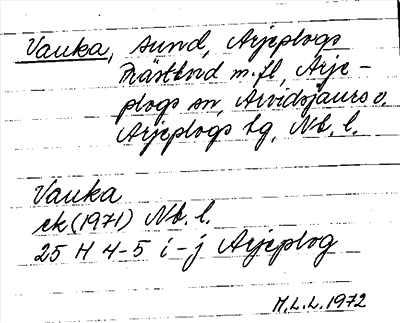 Vauka, sund, Arjeplogs
Prästbord m.fl, Arje-
plogs sn, Arvidsjaurs o.
Arjeplogs tg, Nb. l.
Vauka
ek (1971) Nb. l.
25 H 4-5 i-j Arjeplog
H.L.L. 1972